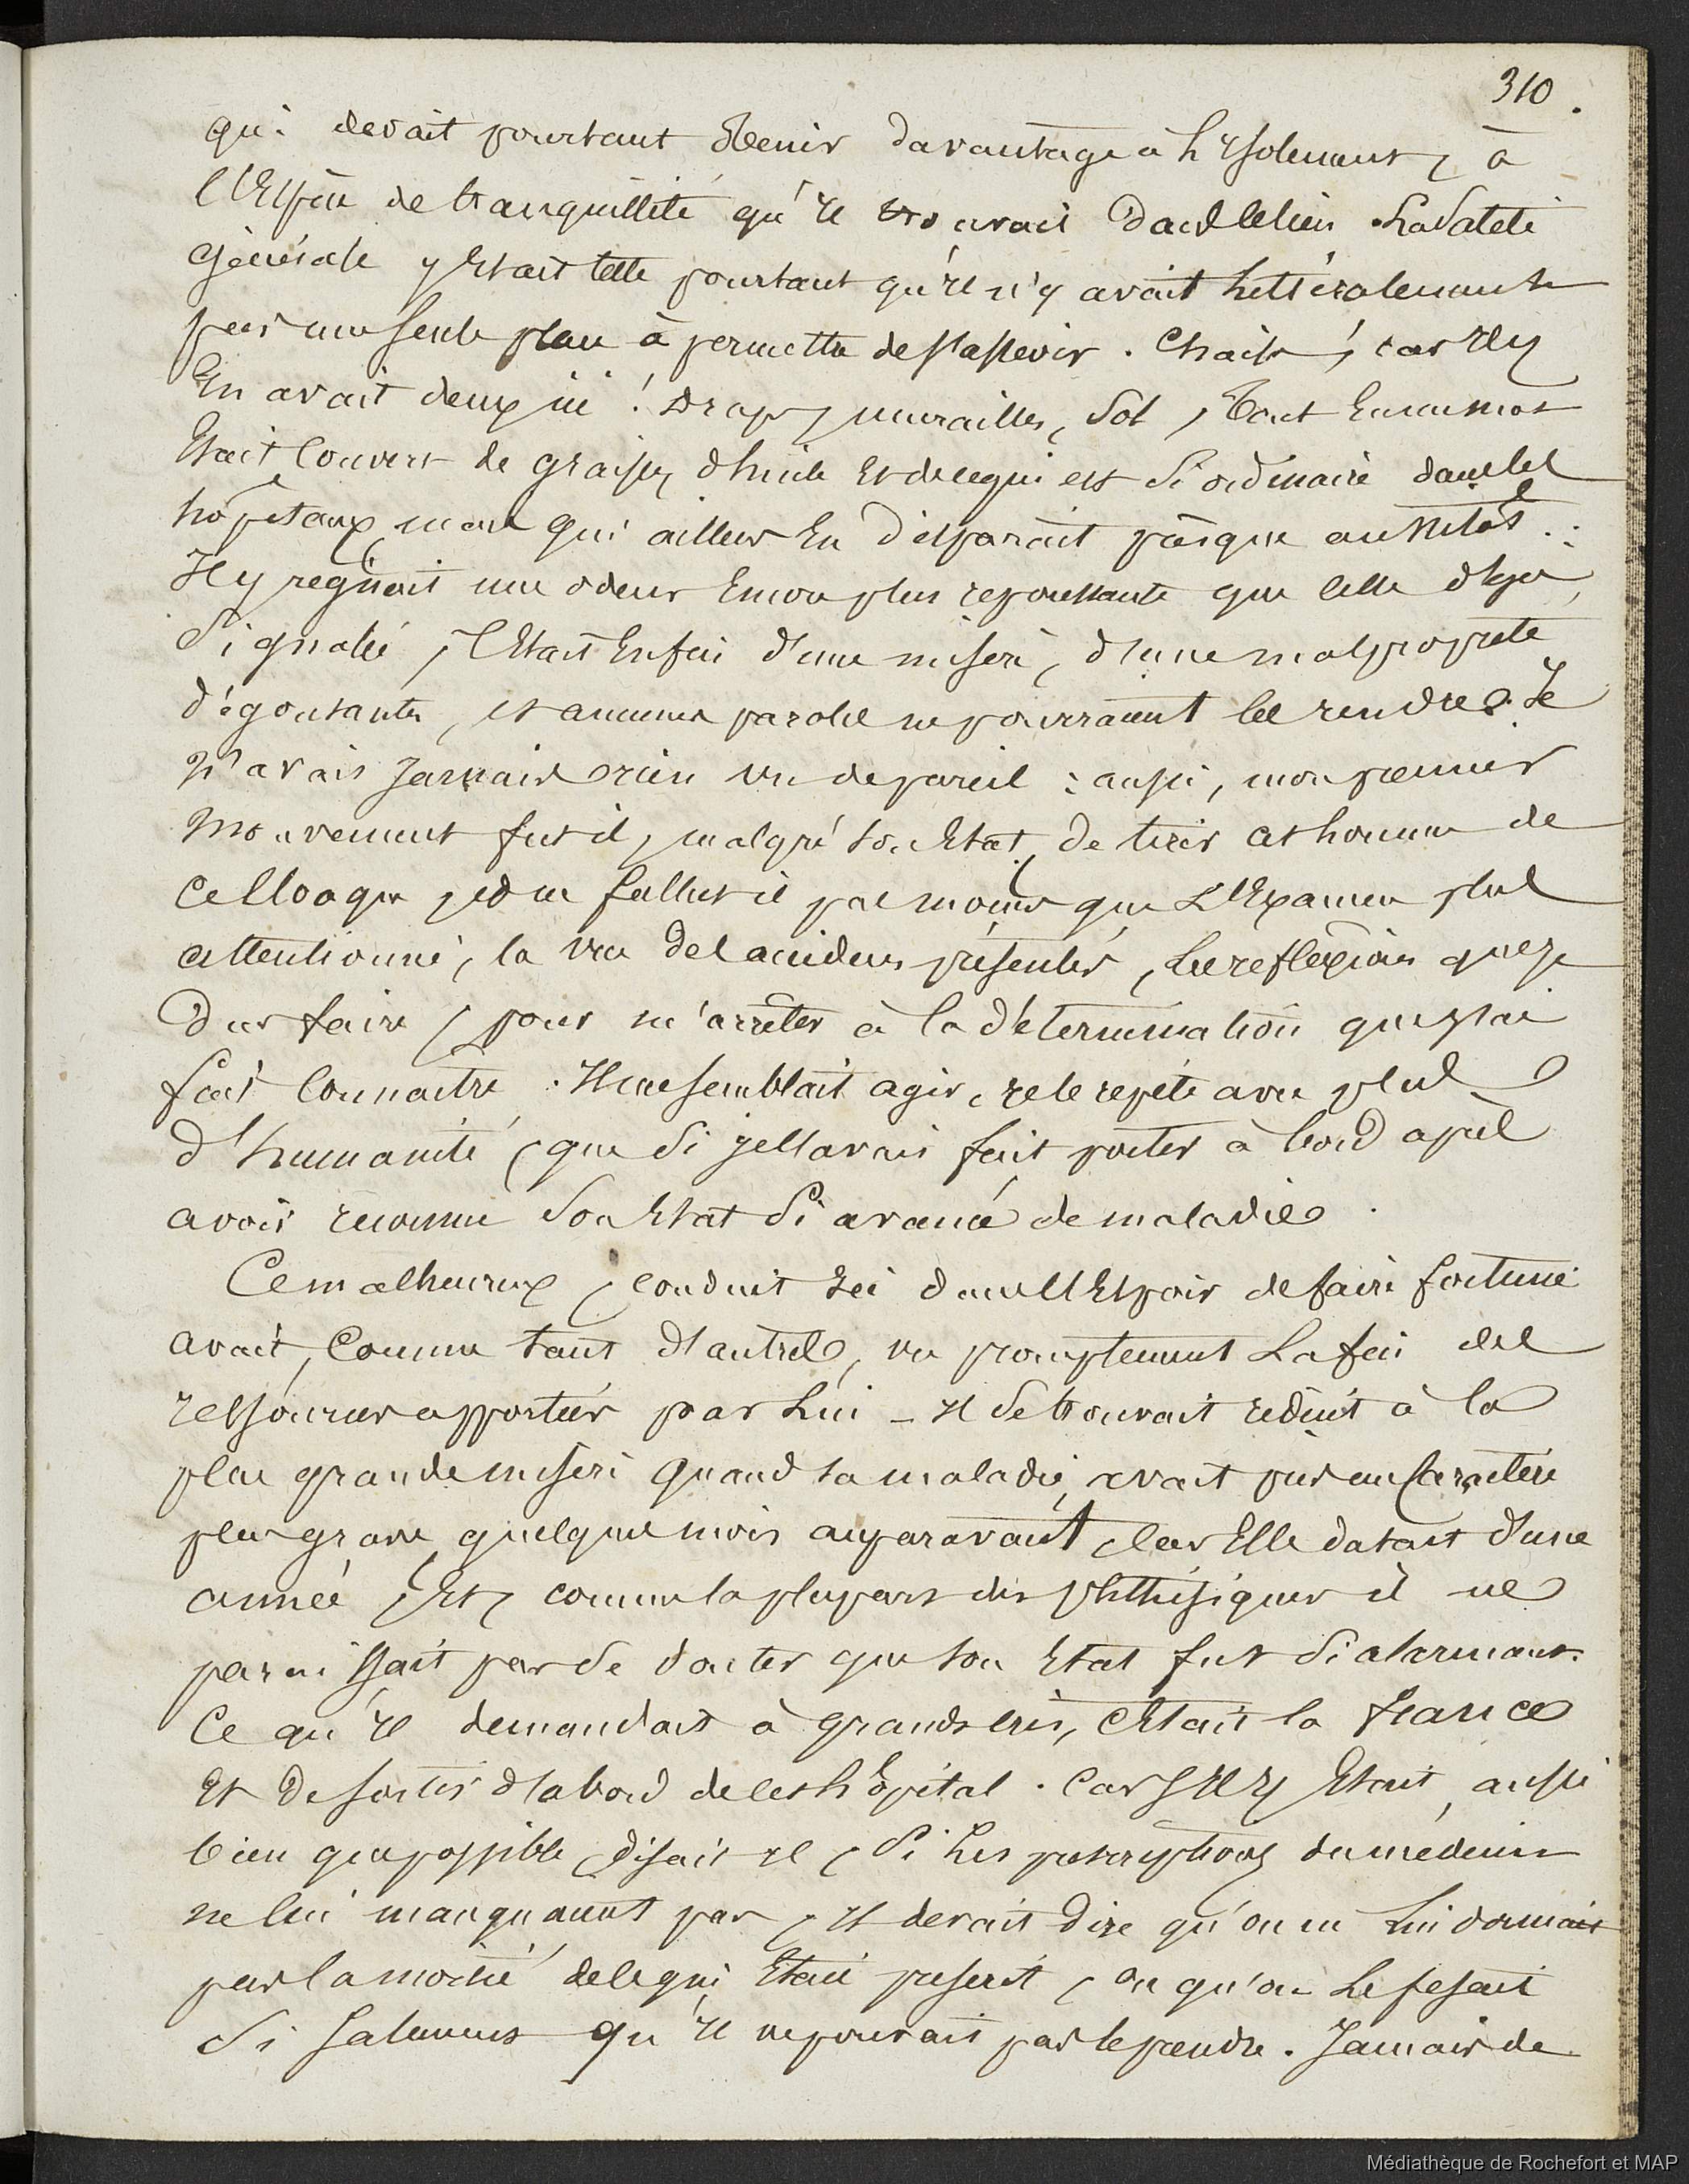 310.
qui devait pourtant tenir davantage à l'Isolement, à
l'Espèce de tranquillité qu'Il trouvait dans ce lieu. La Saleté
Générale y Etait telle pourtant qu'Il n'y avait littéralement
pas une seule place à permettre de s'asseoir. Chaise, car Il y
En avait deux ici ! Draps, murailles, Sol, Tout En un mot
Etait Couvert de graisse, d'huile Et de ce qui est Si ordinaire dans les
hôpitaux, mais qui ailleurs En disparait presque aussitôt.
Il y regnait une odeur Encore plus repoussante que celle deja
Signalée, C'Etait Enfin d'une misère, d'une malpropreté
dégoutantes, et aucunes paroles ne pourraient les rendre. Je
N'avais Jamais rien vu de pareil : aussi, mon premier
Mouvement fut il, malgré son Etat, de tirer cet homme de
Ce Cloaque, et ne fallut il pas moins que L'Examen plus
attentionné, la vue des accidens présentés, Les reflexions que je
Dus faire, pour m'arrêter à la détermination que j'ai
fait Connaitre. Il me semblait agir, je le repète avec plus
d'humanité, que Si je l'avais fait porter à bord après
avoir reconnu Son Etat Si avancé de maladie.
Ce malheureux, conduit Ici dans l'Espoir de faire fortune
avait, Comme tant d'autres, vu promptement La fin des
ressources apportées par Lui - Il se trouvait réduit à la
plus grande misère quand sa maladie avait pris un Caractère
plus grave quelques mois auparavant, Car Elle datait d'une
année, Et, comme la plupart des phthisiques il ne
paraissait pas se douter que son Etat fut Si alarmant.
Ce qu'Il demandait à grands cris, C'Etait la France
Et De sortir d'abord de cet hôpital. Car S'Il y Etait, aussi
bien que possible, disait Il, Si Les prescriptions du médecin
ne lui manquaient pas, Il devait Dire qu'on ne Lui donnait
pas la moitié de ce qui Etait prescrit, ou qu'on Le fesait
Si Salement qu'Il ne pouvait pas le prendre. Jamais de